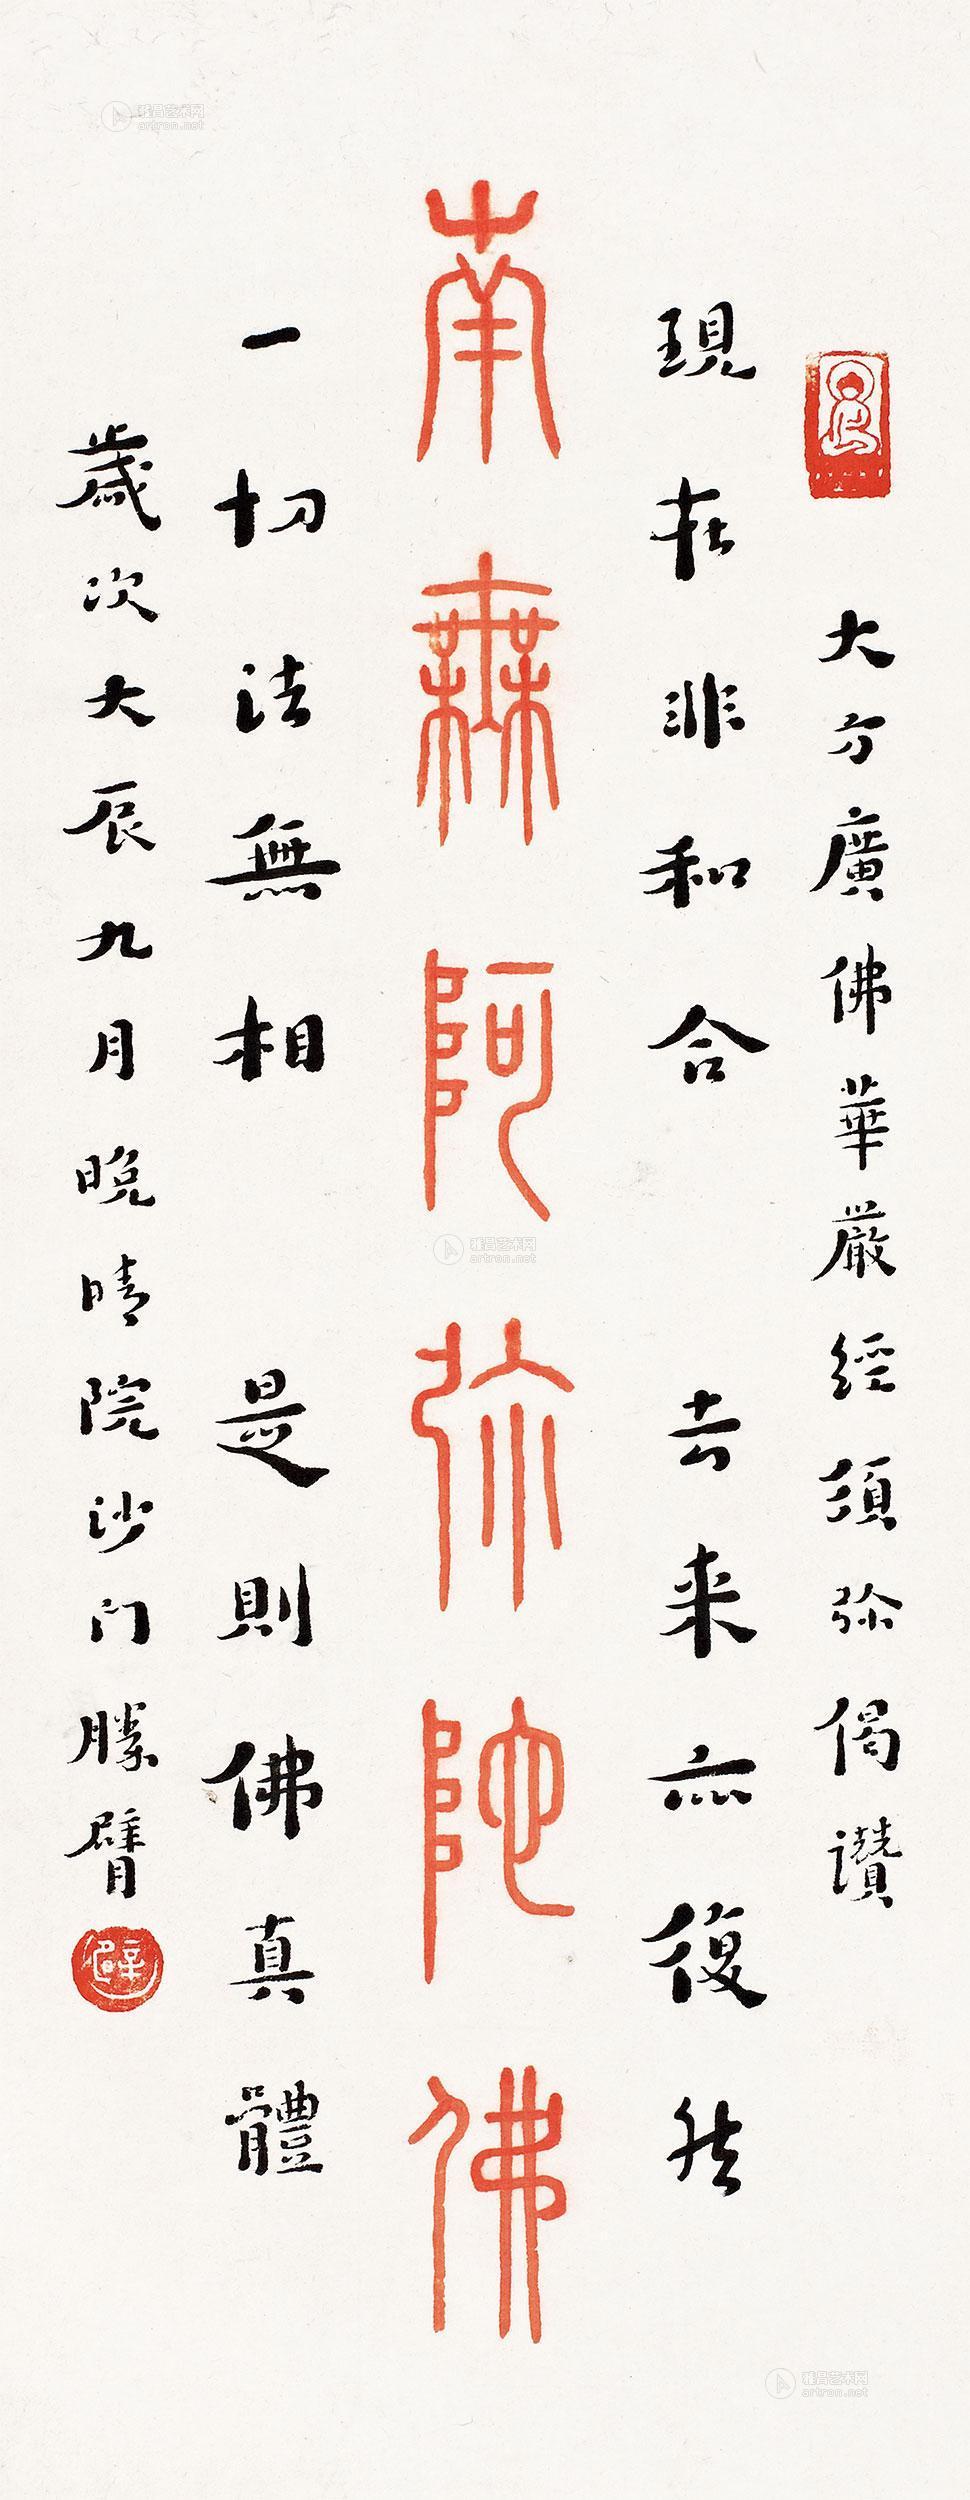 大方廣佛華嚴經須弥偈讃
現在非和合　去来亦復然
南無阿弥陀佛
一切法無相　是則佛真體
歲次大辰九月晚晴院沙门勝臂
雅昌艺术网
artron.net
雅昌艺术网
artron.net
雅昌艺术网
artron.net